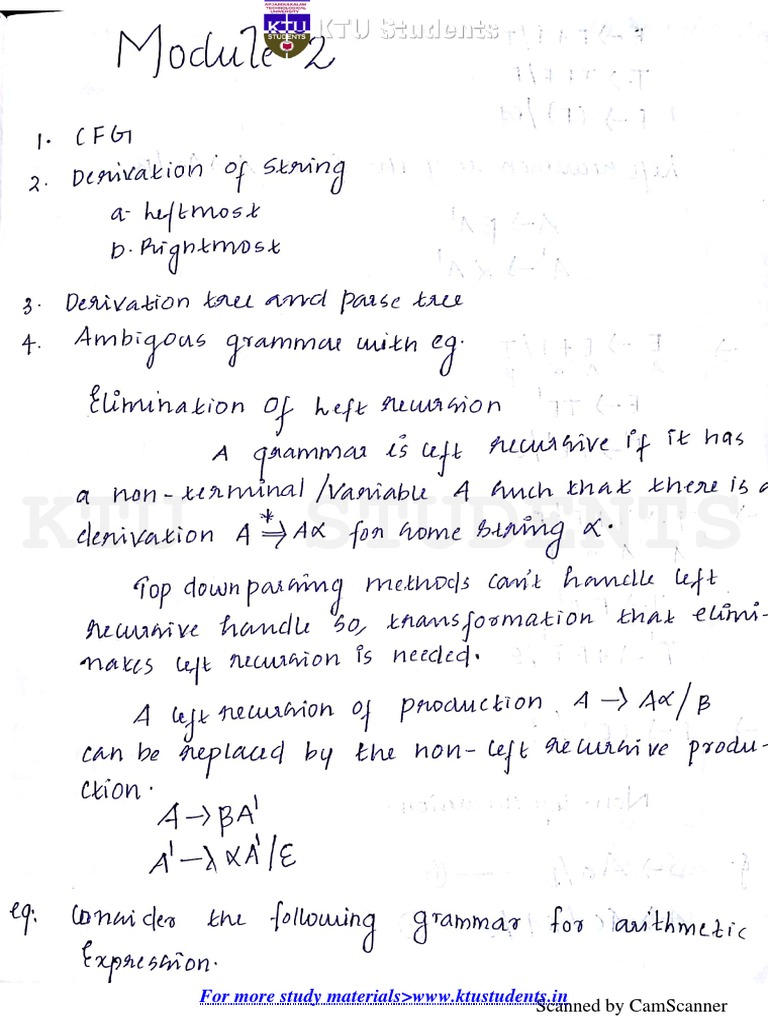 APJ ABDUL KALAM
TECHNOLOGICAL
UNIVERSITY
KTU
STUDENTS
KTU Students
Module 2
1. CFG
2. Derivation of string
a. Leftmost
b. Rightmost
3. Derivation tree and parse tree
4. Ambigous grammar with eg.
Elimination of Left recursion
A grammar is left recursive if it has
a non-terminal/variable A such that there is a
derivation A *⇒ Aα for some string α.
Top down parsing methods can't handle left
recursive handle so, transformation that elimi-
nates left recursion is needed.
A left recursion of production A → Aα/β
can be replaced by the non-left recursive produ-
ction.
A → βA'
A' → αA'/ε
eg: Consider the following grammar for arithmetic
Expression.
KTU STUDENTS
For more study materials>www.ktustudents.in
Scanned by CamScanner